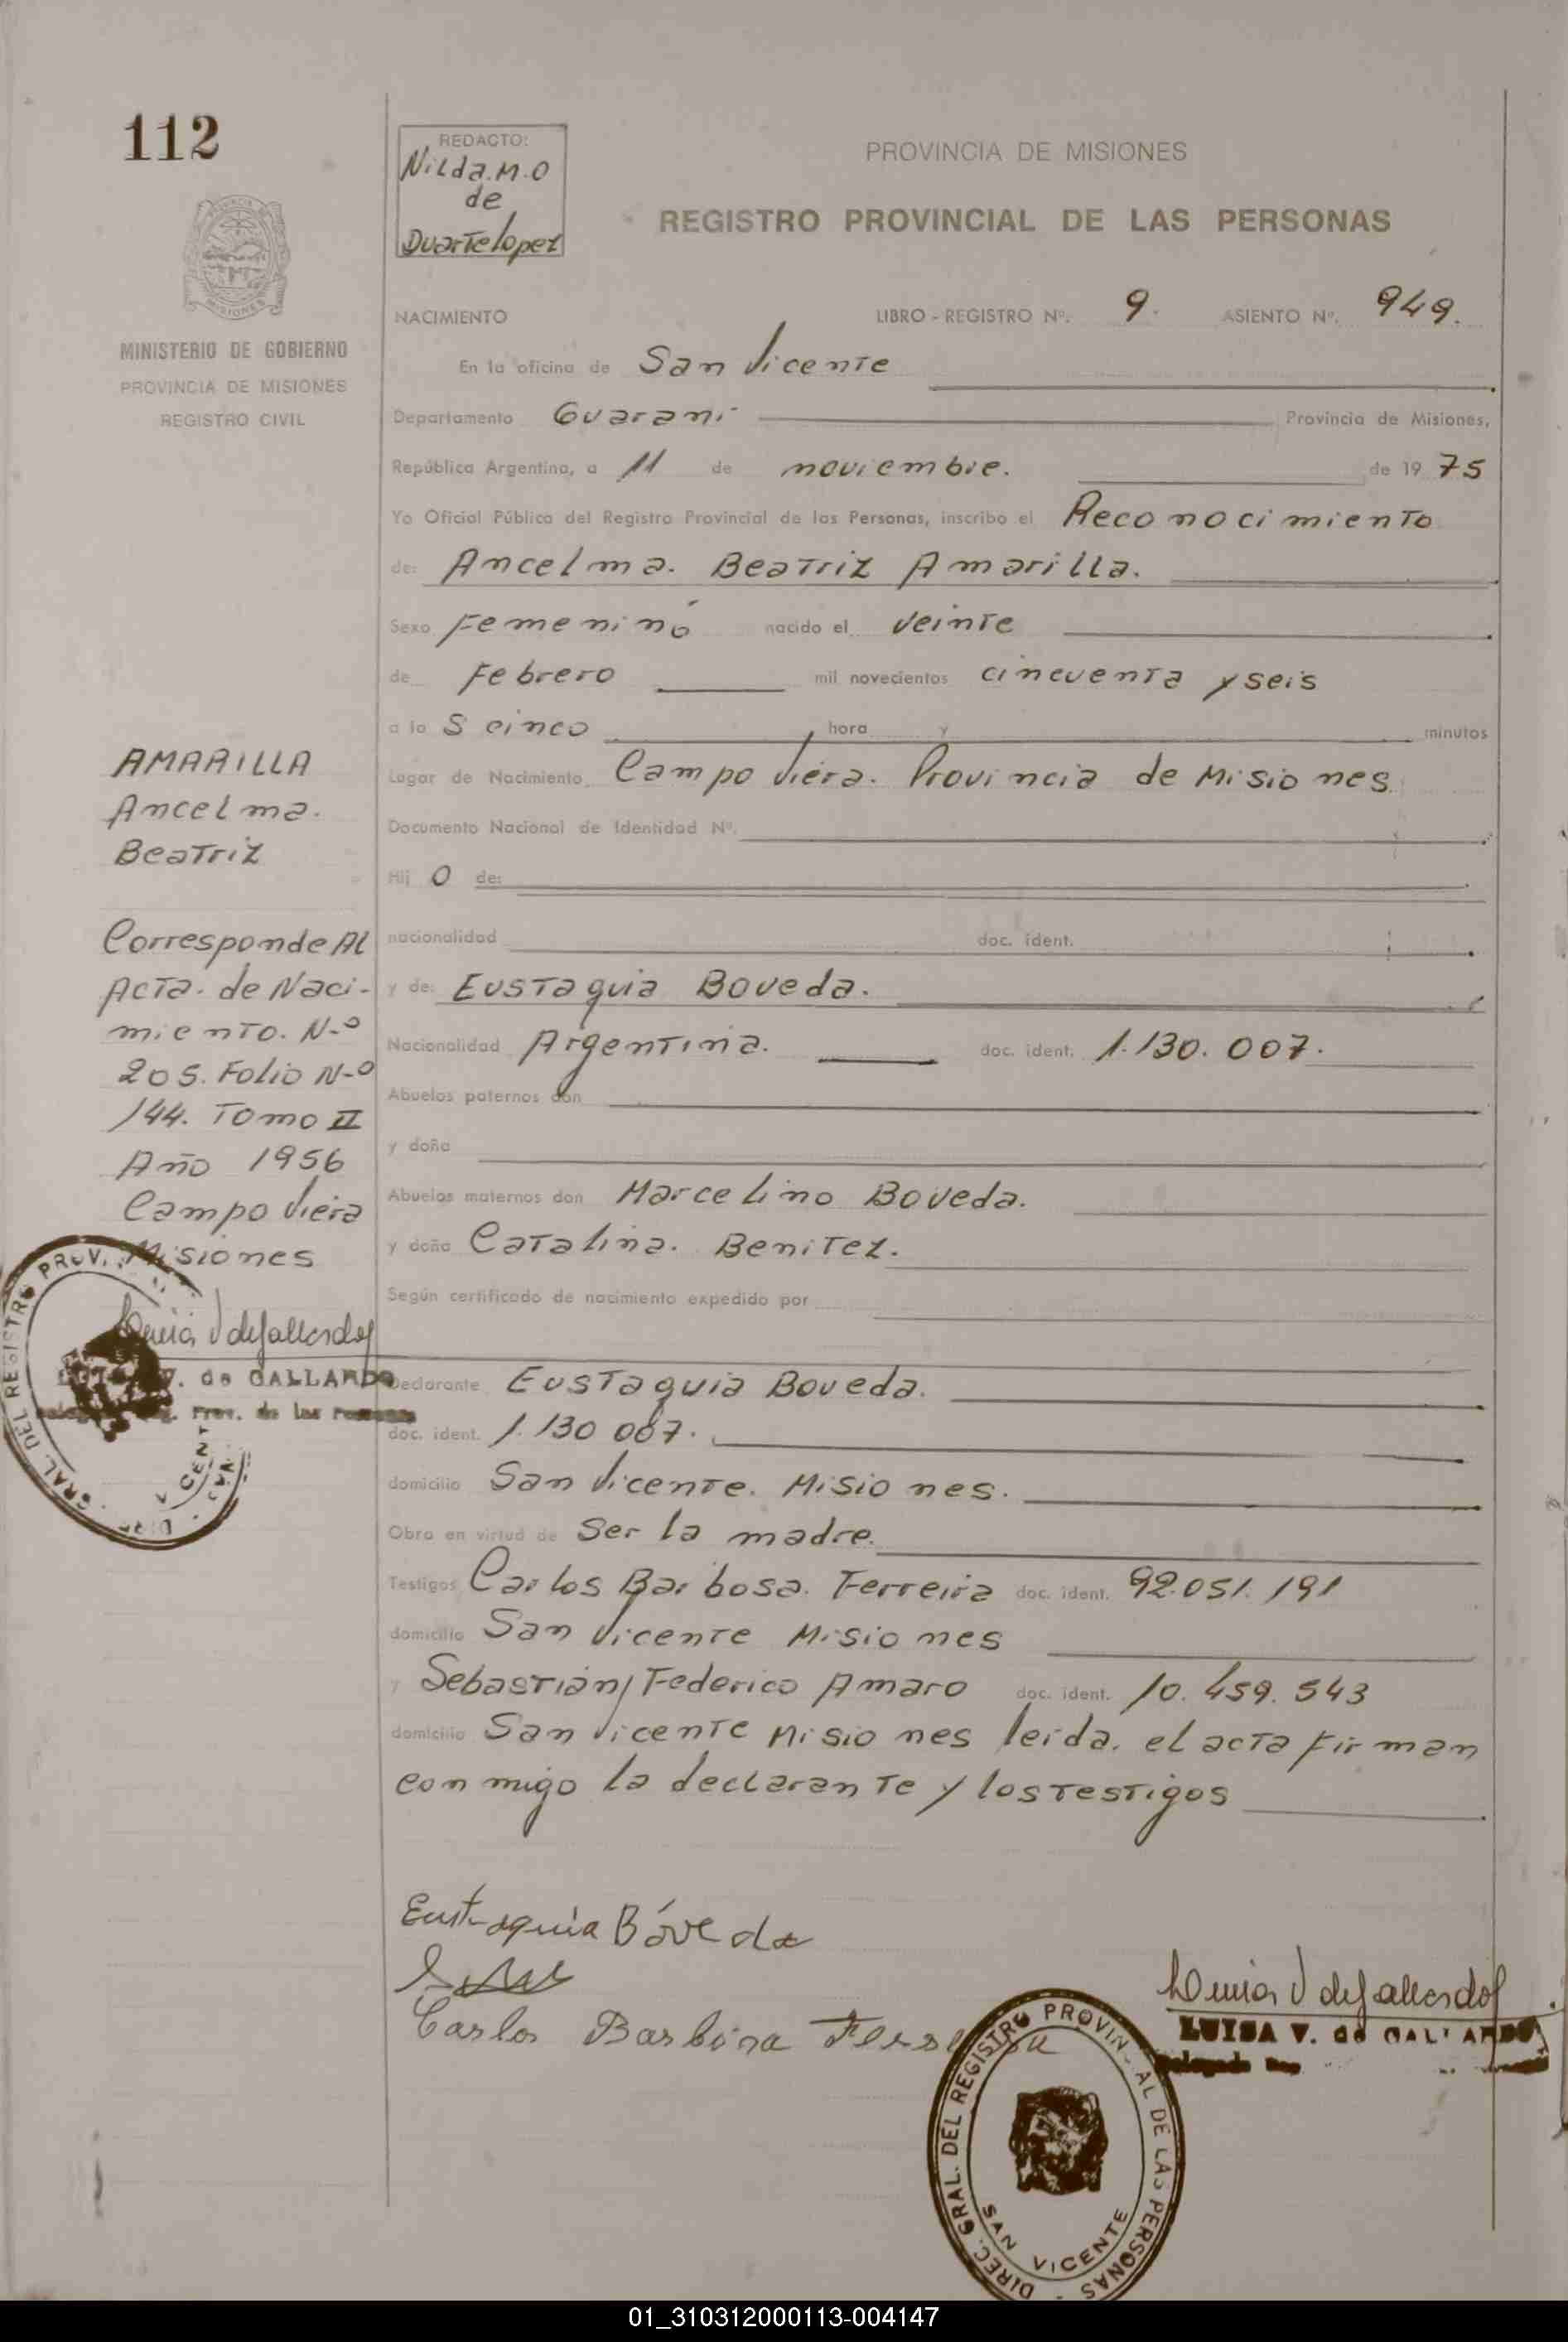 112
REDACTO:
Nilda.M.O
de
Duartelopez
PROVINCIA DE MISIONES
REGISTRO PROVINCIAL DE LAS PERSONAS
MISIONES
MINISTERIO DE GOBIERNO
PROVINCIA DE MISIONES
REGISTRO CIVIL
NACIMIENTO LIBRO - REGISTRO Nº. 9. ASIENTO Nº. 949.
En la oficina de San Vicente
Departamento Guarani Provincia de Misiones,
República Argentina, a 11 de noviembre. de 19 75
Yo Oficial Público del Registro Provincial de las Personas, inscribo el Reconocimiento
de: Ancelma. Beatriz Amarilla.
Sexo Femenino nacido el veinte
de Febrero mil novecientos cincuenta y seis
a la s cinco hora y minutos
Lugar de Nacimiento Campo Viera. Provincia de Misiones
Documento Nacional de Identidad Nº.
Hij o de:
nacionalidad doc. ident.
y de: Eustaquia Boveda.
Nacionalidad Argentina. doc. ident. 1.130.007.
Abuelos paternos don
y doña
Abuelos maternos don Marcelino Boveda.
y doña Catalina. Benitez.
Según certificado de nacimiento expedido por
Declarante Eustaquia Boveda.
doc. ident. 1.130 007.
domicilio San Vicente. Misiones.
Obra en virtud de Ser la madre.
Testigos Carlos Barbosa. Ferreira doc. ident. 92.051.191
domicilio San Vicente Misiones
y Sebastián Federico Amaro doc. ident. 10.459.543
domicilio San Vicente Misiones leida. el acta firman
conmigo la declarante y los testigos
AMARILLA
Ancelma.
Beatriz
Corresponde Al
Acta. de Naci-
miento. N-º
205. Folio N-º
144. Tomo II
Año 1956
Campo Viera
Misiones
V. de GALLARDO
Prov. de las Personas
GRAL. DEL REGISTRO PROV.
Eustaquia Bóveda
Carlos Barbosa Ferreira
LUISA V. de GALLARDO
DIREC. GRAL. DEL REGISTRO PROVINCIAL DE LAS PERSONAS
SAN VICENTE
01_310312000113-004147